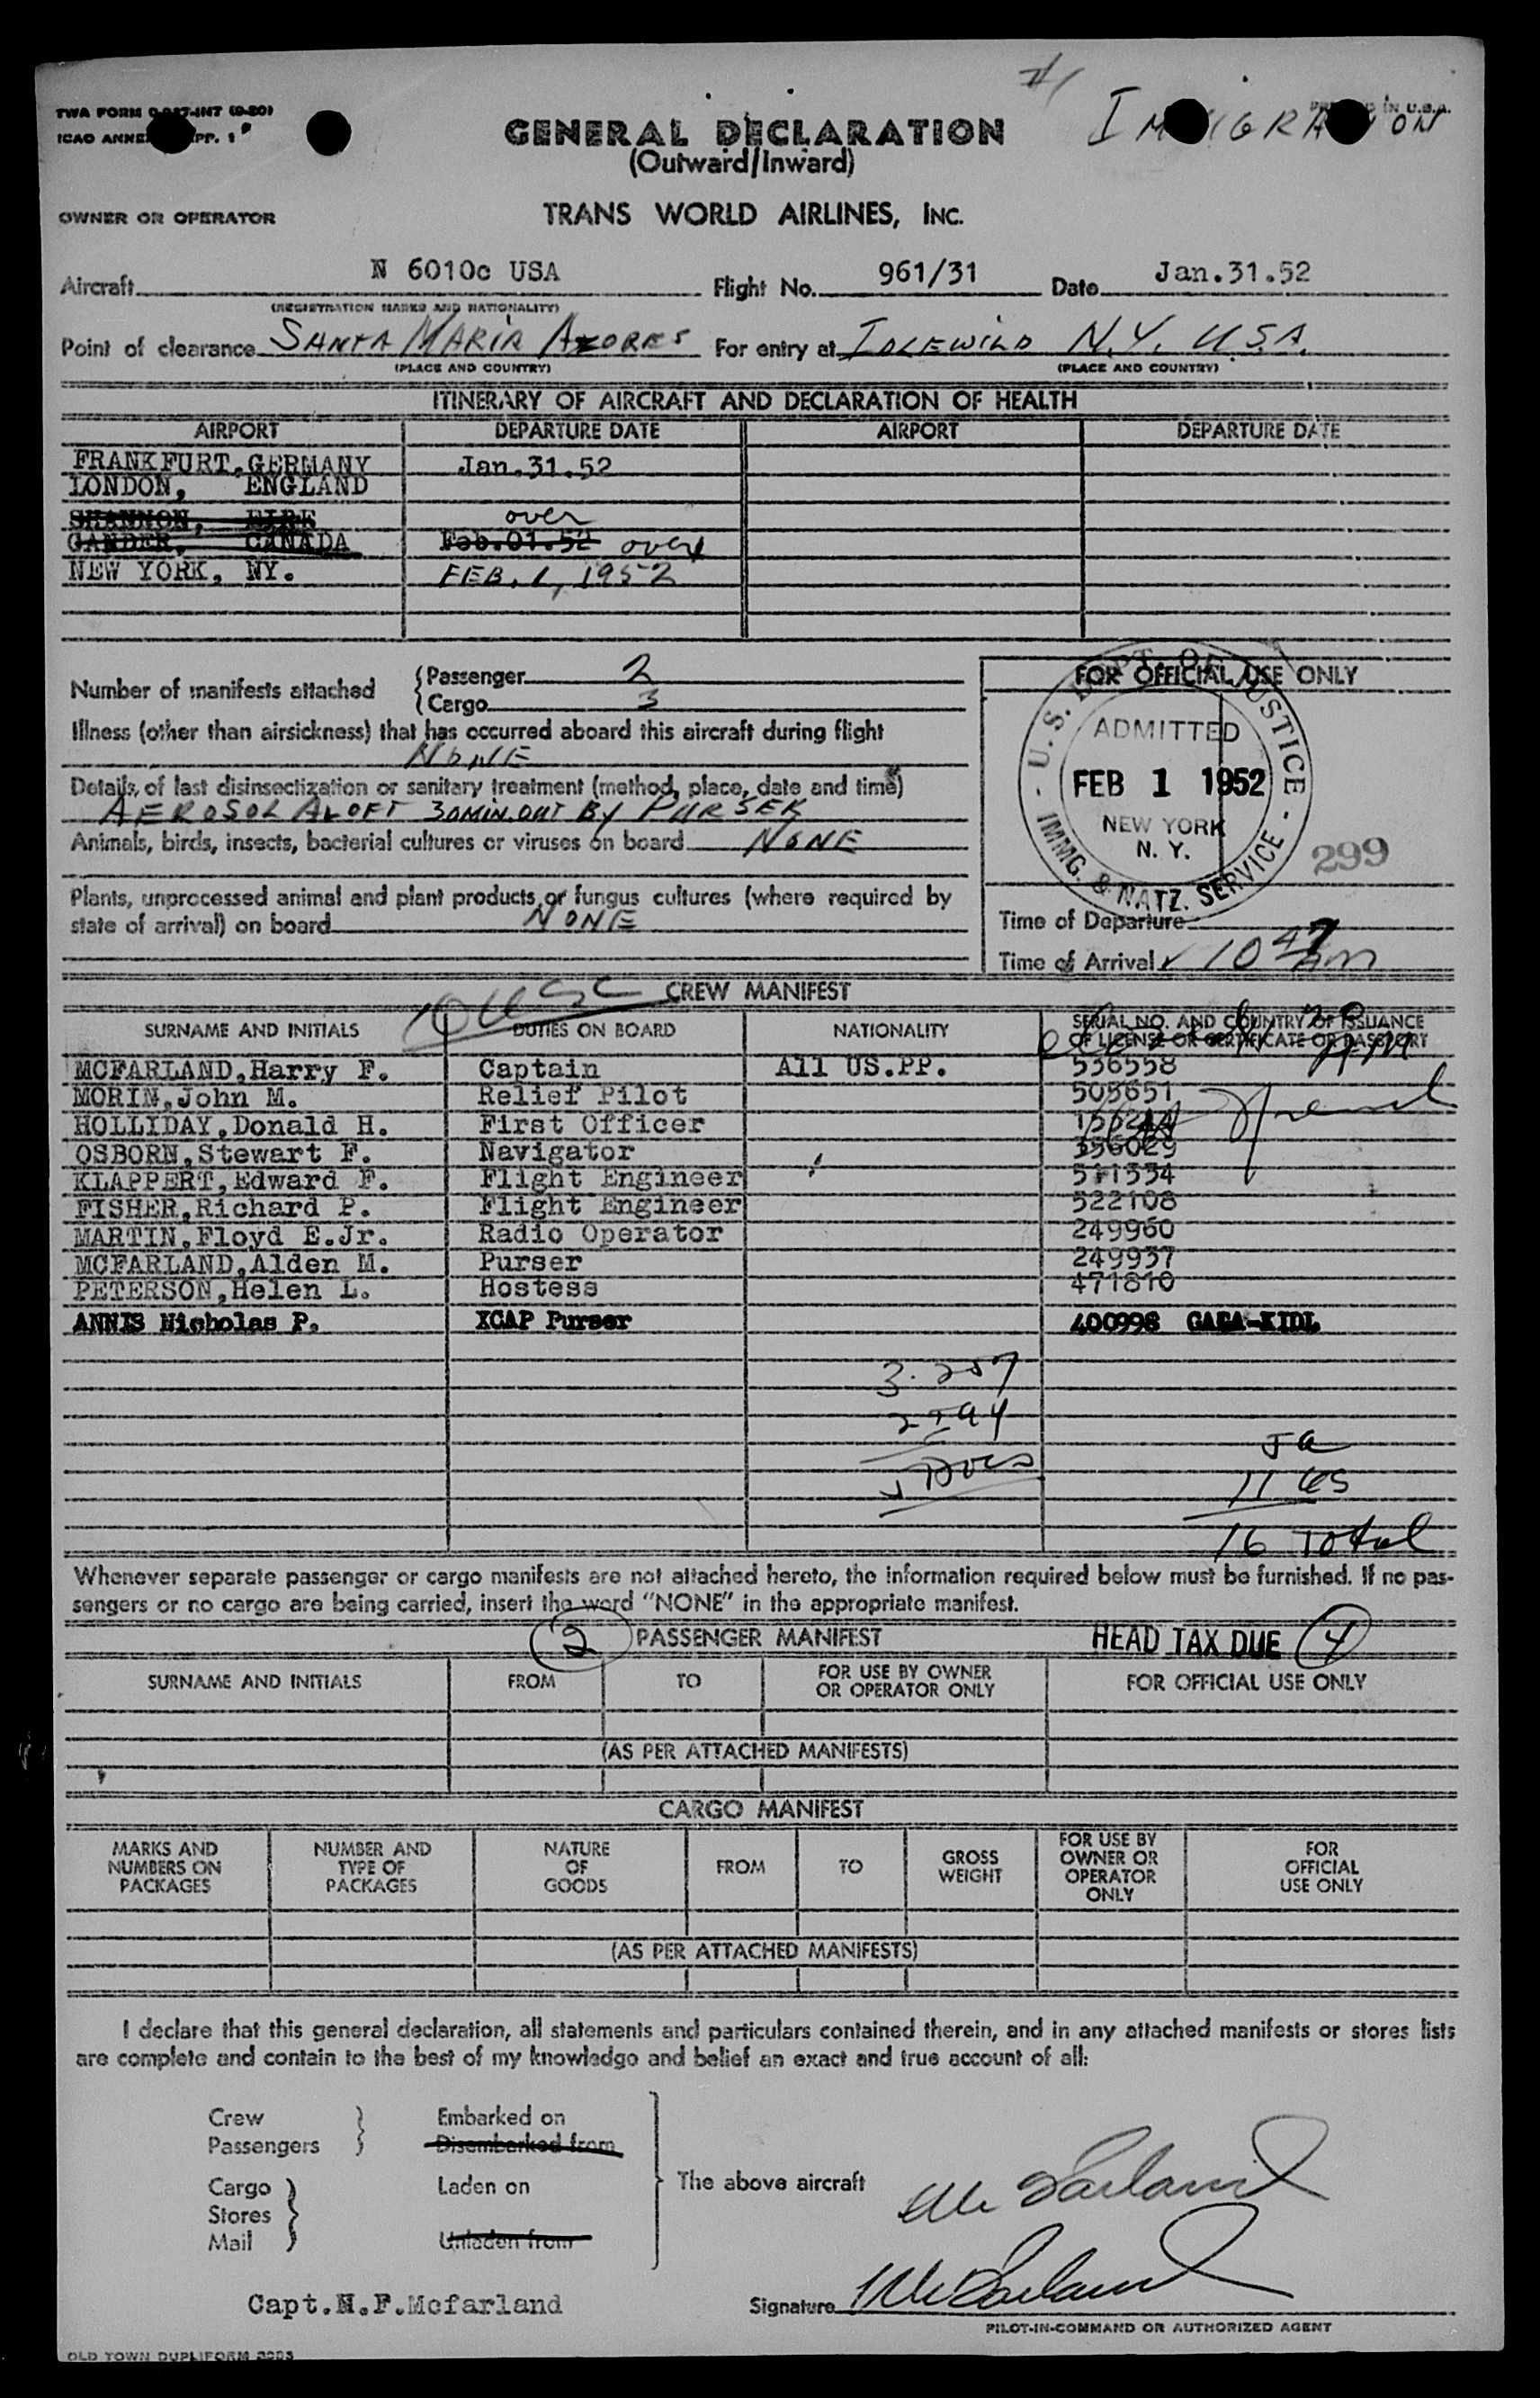 #1
TWA FORM INT
IMMIGRATION
IN U.S.A.
ICAO ANNE PP. 1
GENERAL DECLARATION
(Outward/Inward)
OWNER OR OPERATOR TRANS WORLD AIRLINES, INC.
Aircraft N 6010c USA Flight No. 961/31 Date Jan.31.52
(REGISTRATION MARKS AND NATIONALITY)
Point of clearance SANTA MARIA AZORES For entry at IDLEWILD N.Y. U.S.A.
(PLACE AND COUNTRY) (PLACE AND COUNTRY)
ITINERARY OF AIRCRAFT AND DECLARATION OF HEALTH
AIRPORT DEPARTURE DATE AIRPORT DEPARTURE DATE
FRANKFURT,GERMANY Jan.31.52
LONDON, ENGLAND
SHANNON, EIRE over
GANDER, CANADA Feb.01.52 over
NEW YORK, NY. FEB. 1, 1952
Number of manifests attached {Passenger 2
{Cargo 3
FOR OFFICIAL USE ONLY
Illness (other than airsickness) that has occurred aboard this aircraft during flight
NONE
Details of last disinsectization or sanitary treatment (method, place, date and time)
AEROSOL ALOFT 30MIN.OUT BY PURSER
Animals, birds, insects, bacterial cultures or viruses on board NONE
Plants, unprocessed animal and plant products or fungus cultures (where required by
state of arrival) on board NONE
- U.S. DEPT. OF JUSTICE -
ADMITTED
FEB 1 1952
NEW YORK
N. Y.
IMMG. & NATZ. SERVICE
299
Time of Departure
Time of Arrival 10 47 AM
CREW MANIFEST
10 USC
SURNAME AND INITIALS DUTIES ON BOARD NATIONALITY SERIAL NO. AND COUNTRY OF ISSUANCE
OF LICENSE OR CERTIFICATE OR PASSPORT
MCFARLAND,Harry F. Captain All US.PP. 536558
MORIN,John M. Relief Pilot 505651
HOLLIDAY,Donald H. First Officer
OSBORN,Stewart F. Navigator 356029
KLAPPERT,Edward F. Flight Engineer 511334
FISHER,Richard P. Flight Engineer 522108
MARTIN,Floyd E.Jr. Radio Operator 249960
MCFARLAND,Alden M. Purser 249937
PETERSON,Helen L. Hostess 471810
ANNIS Nicholas P. XCAP Purser 400998 GAEA-KIDL
3.257
2794
5 Docs
5 a
11 US
16 Total
Whenever separate passenger or cargo manifests are not attached hereto, the information required below must be furnished. If no pas-
sengers or no cargo are being carried, insert the word "NONE" in the appropriate manifest.
2 PASSENGER MANIFEST HEAD TAX DUE 4
SURNAME AND INITIALS FROM TO FOR USE BY OWNER
OR OPERATOR ONLY FOR OFFICIAL USE ONLY
(AS PER ATTACHED MANIFESTS)
CARGO MANIFEST
MARKS AND
NUMBERS ON
PACKAGES
NUMBER AND
TYPE OF
PACKAGES
NATURE
OF
GOODS
FROM
TO
GROSS
WEIGHT
FOR USE BY
OWNER OR
OPERATOR
ONLY
FOR
OFFICIAL
USE ONLY
(AS PER ATTACHED MANIFESTS)
I declare that this general declaration, all statements and particulars contained therein, and in any attached manifests or stores lists
are complete and contain to the best of my knowledge and belief an exact and true account of all:
Crew } Embarked on
Passengers Disembarked from
Cargo } Laden on
Stores
Mail Unladen from
The above aircraft McFarland
Capt.H.F.Mcfarland Signature McFarland
PILOT-IN-COMMAND OR AUTHORIZED AGENT
OLD TOWN DUPLIFORM